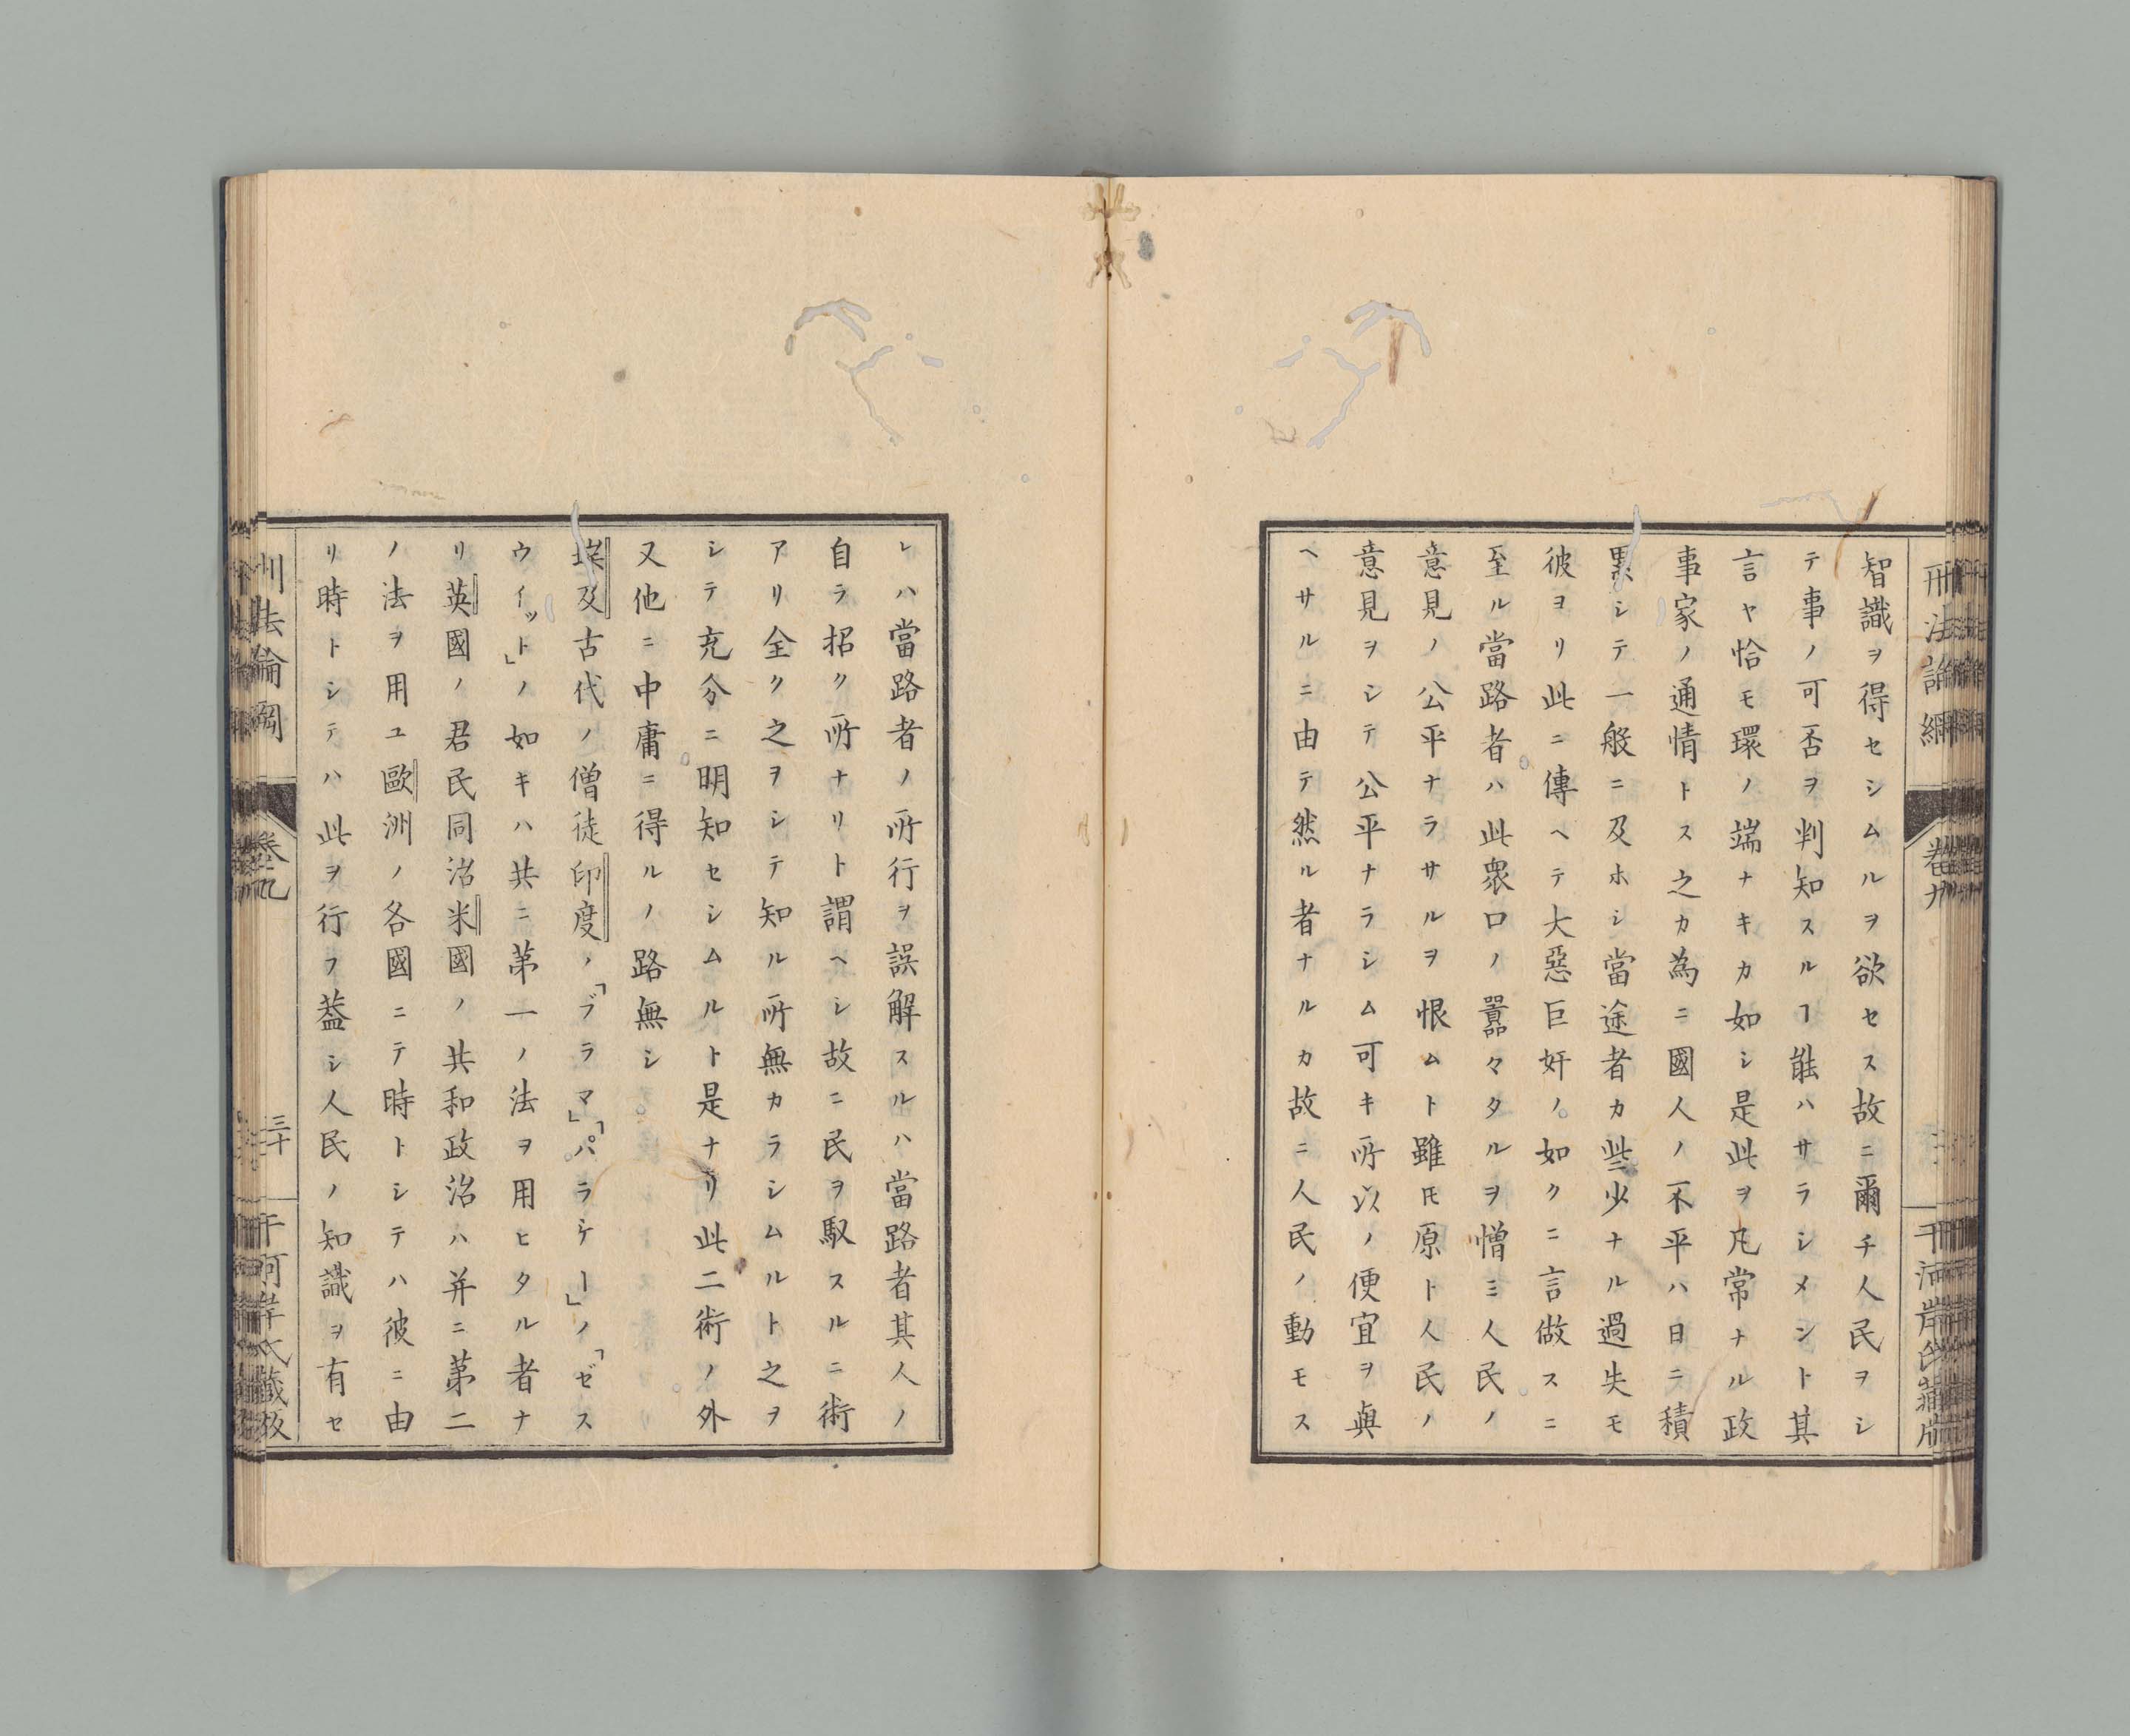 智識ヲ得セシムルヲ欲セス故ニ爾チ人民ヲシ
テ事ノ可否ヲ判知スルヿ能ハサラシメント其
言ヤ恰モ環ノ端ナキカ如シ是此ヲ凡常ナル政
事家ノ通情トス之カ為ニ國人ノ不平ハ日ニ積
累シテ一般ニ及ホシ當途者カ些少ナル過失モ
彼ヨリ此ニ傳ヘテ大惡巨奸ノ如クニ言做スニ
至ル當路者ハ此衆口ノ囂々タルヲ憎ミ人民ノ
意見ノ公平ナラサルヲ恨ムト雖𪜈原ト人民ノ
意見ヲシテ公平ナラシム可キ所以ノ便宜ヲ與
ヘサルニ由テ然ル者ナルカ故ニ人民ノ動モス
レハ當路者ノ所行ヲ誤解スルハ當路者其人ノ
自ラ招ク所ナリト謂ヘシ故ニ民ヲ馭スルニ術
アリ全ク之ヲシテ知ル所無カラシムルト之ヲ
シテ充分ニ明知セシムルト是ナリ此二術ノ外
又他ニ中庸ニ得ルノ路無シ
埃及古代ノ僧徒印度ノ「ブラマ」「パラケー」ノ「ゼス
ウイット」ノ如キハ共ニ第一ノ法ヲ用ヒタル者ナ
リ英國ノ君民同治米國ノ共和政治ハ并ニ第二
ノ法ヲ用ユ歐洲ノ各國ニテ時トシテハ彼ニ由
リ時トシテハ此ヲ行フ蓋シ人民ノ知識ヲ有セ
刑法論綱
卷九
三十
千河岸氏藏版